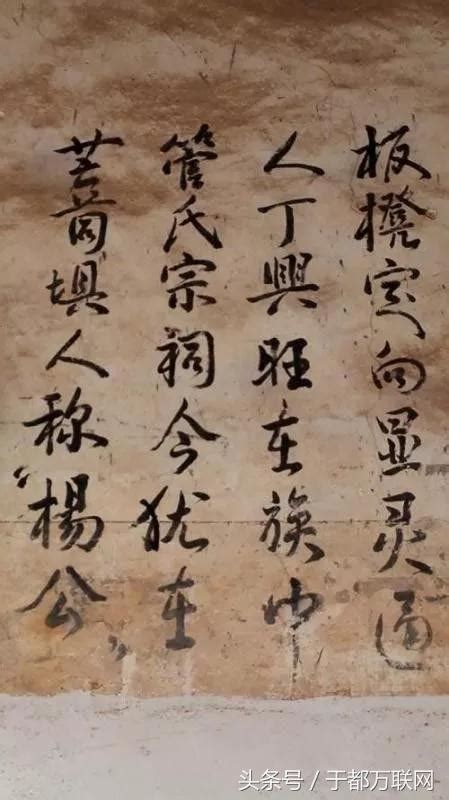 板櫈定向显灵通
人丁興旺在族中
管氏宗祠今犹在
芒茼埧人称“楊公”
头条号／于都万联网